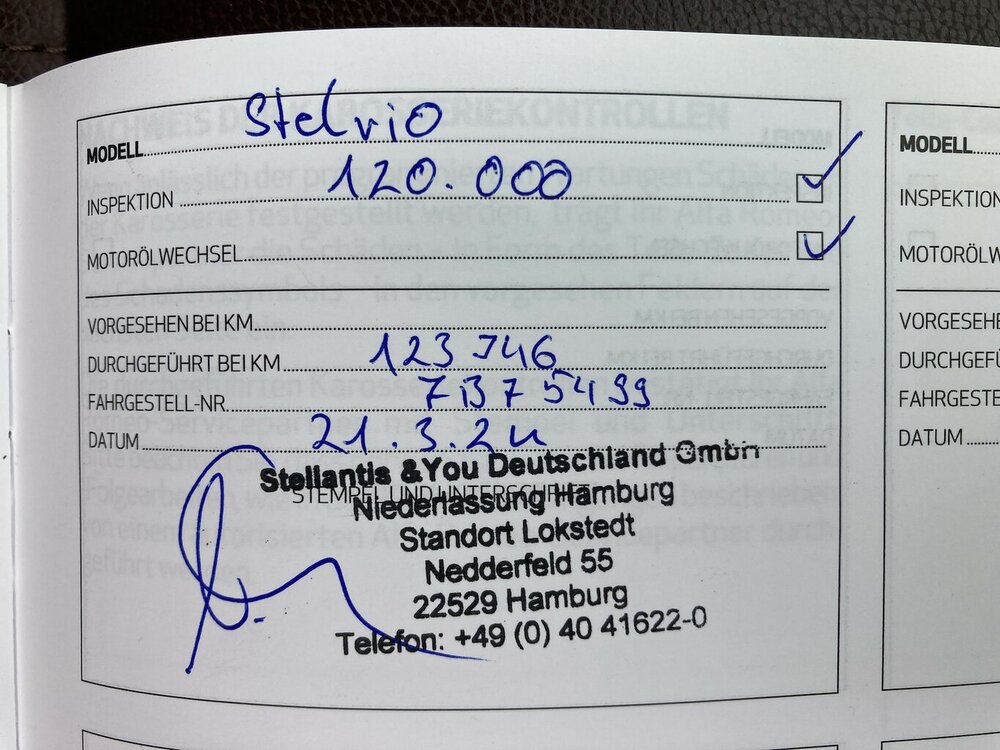 Stelvio
MODELL
120.000
INSPEKTION
MOTORÖLWECHSEL
VORGESEHEN BEI KM
DURCHGEFÜHRT BEI KM 123 746
FAHRGESTELL-NR. 7B75499
DATUM 21.3.24
STEMPEL UND UNTERSCHRIFT
Stellantis &You Deutschland GmbH
Niederlassung Hamburg
Standort Lokstedt
Nedderfeld 55
22529 Hamburg
Telefon: +49 (0) 40 41622-0
MODELL
INSPEKTION
MOTORÖLW
VORGESEHE
DURCHGEFÜ
FAHRGESTE
DATUM
NACHWEIS DER KAROSSERIEKONTROLLEN